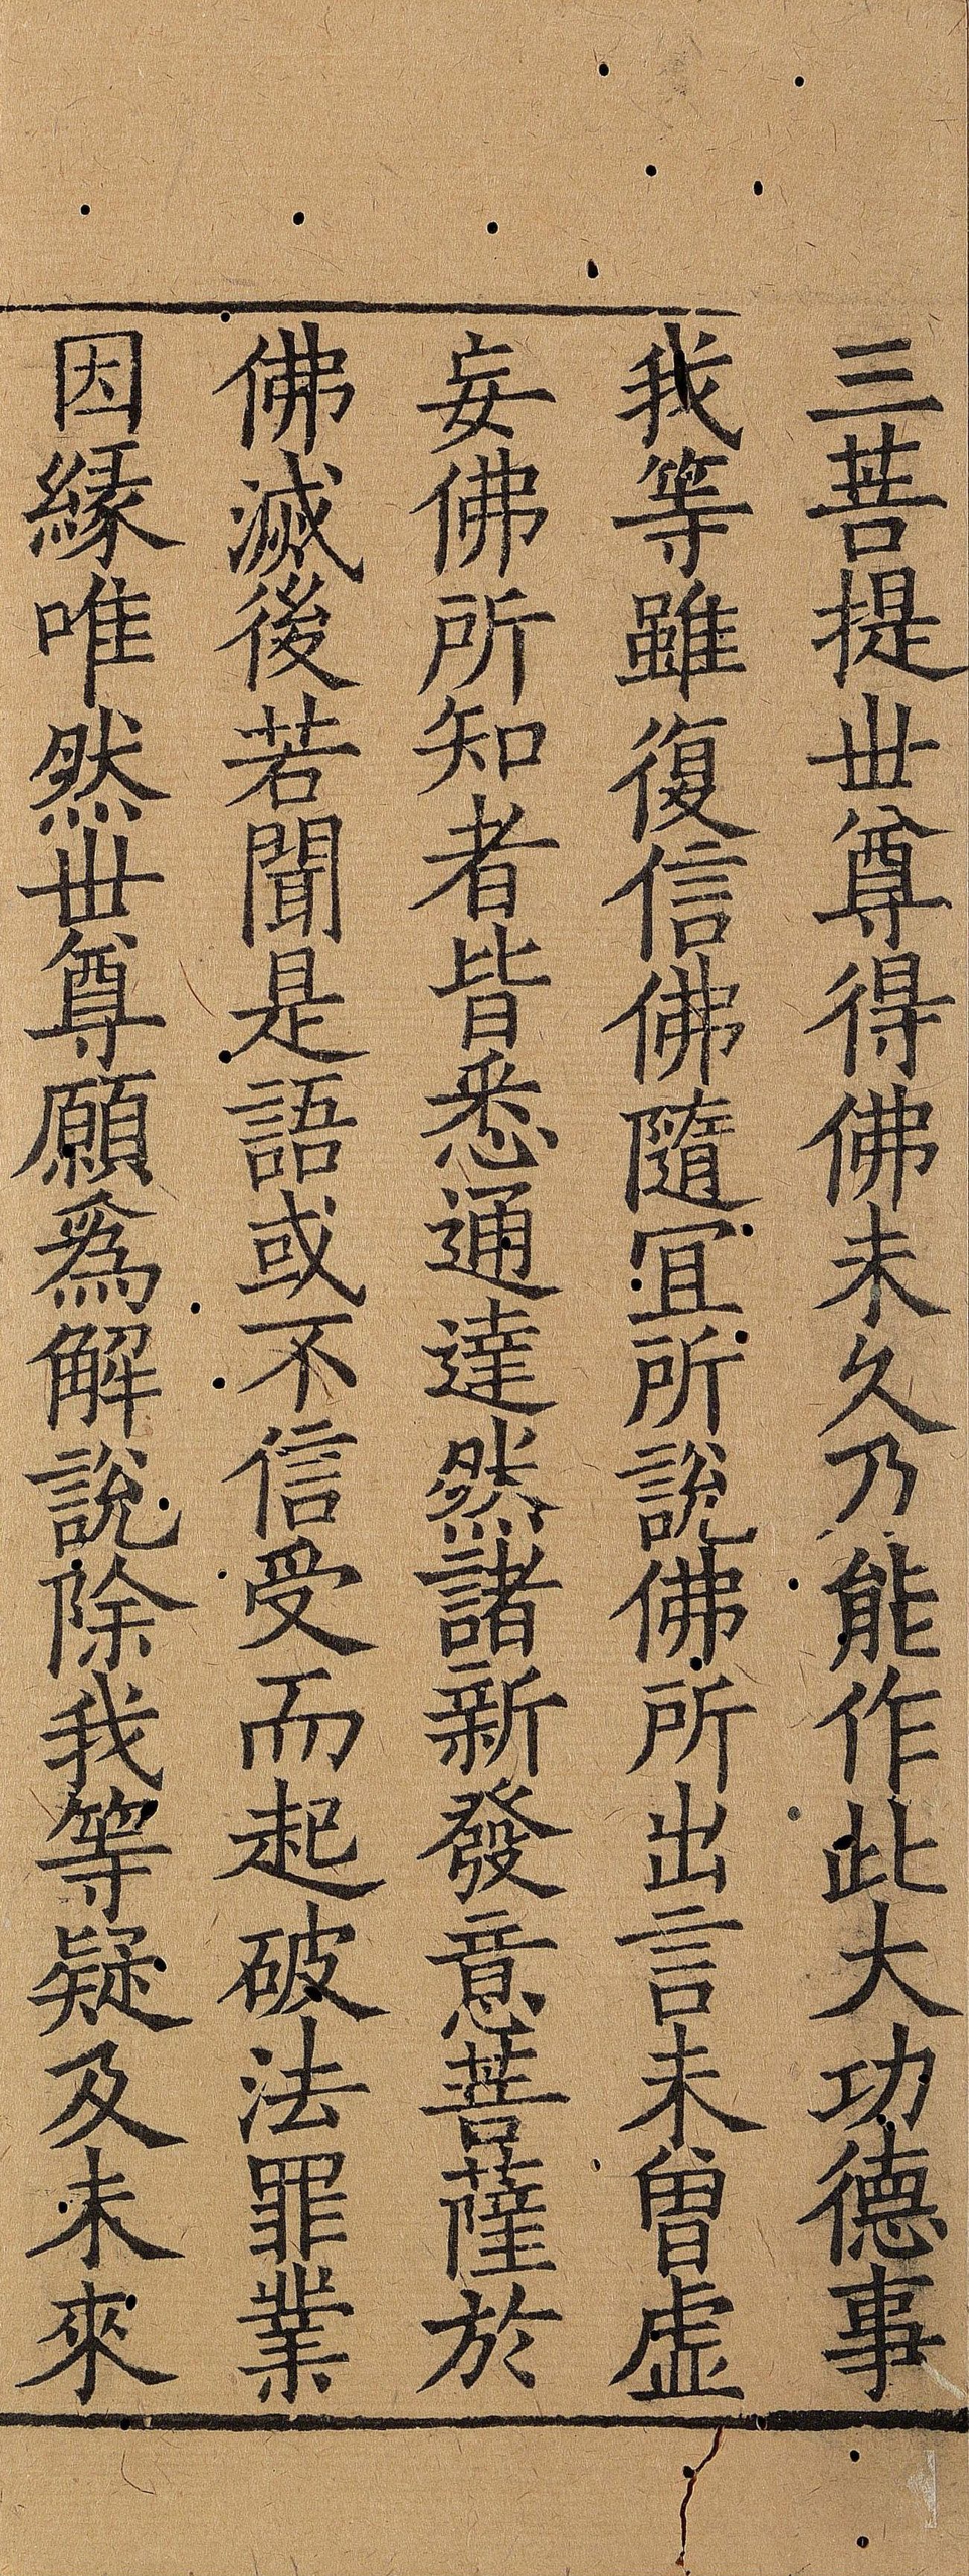 三菩提世尊得佛未久乃能作此大功德事
我等雖復信佛隨宜所說佛所出言未曾虛
妄佛所知者皆悉通達然諸新發意菩薩於
佛滅後若聞是語或不信受而起破法罪業
因緣唯然世尊願爲解說除我等疑及未來